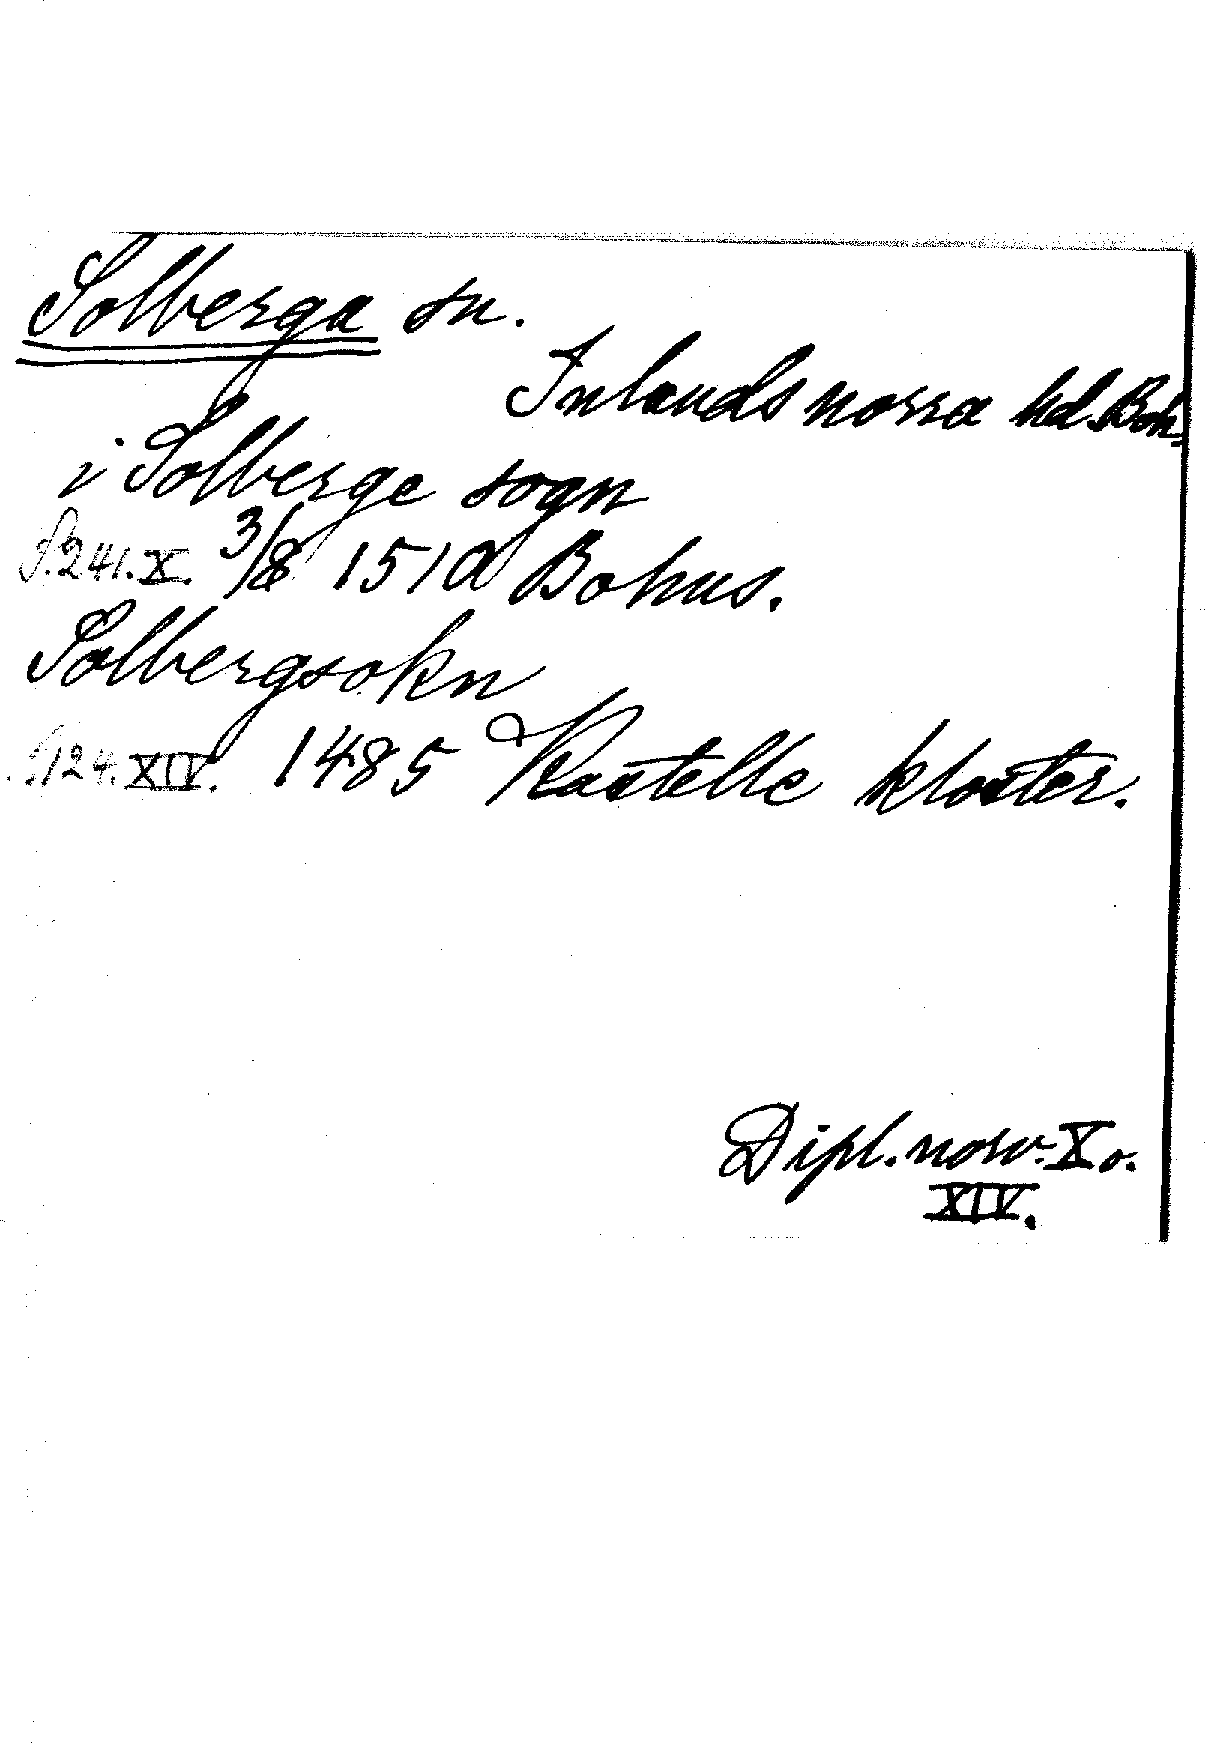 Solberga sn.
Inlands norra hd. Boh.
i Solberge sogn
S. 241. X. 3/8 1510 Bohus.
Solbergsokn
S. 124. XIV. 1485 Kastelle kloster.
Dipl. norv. X o.
XIV.